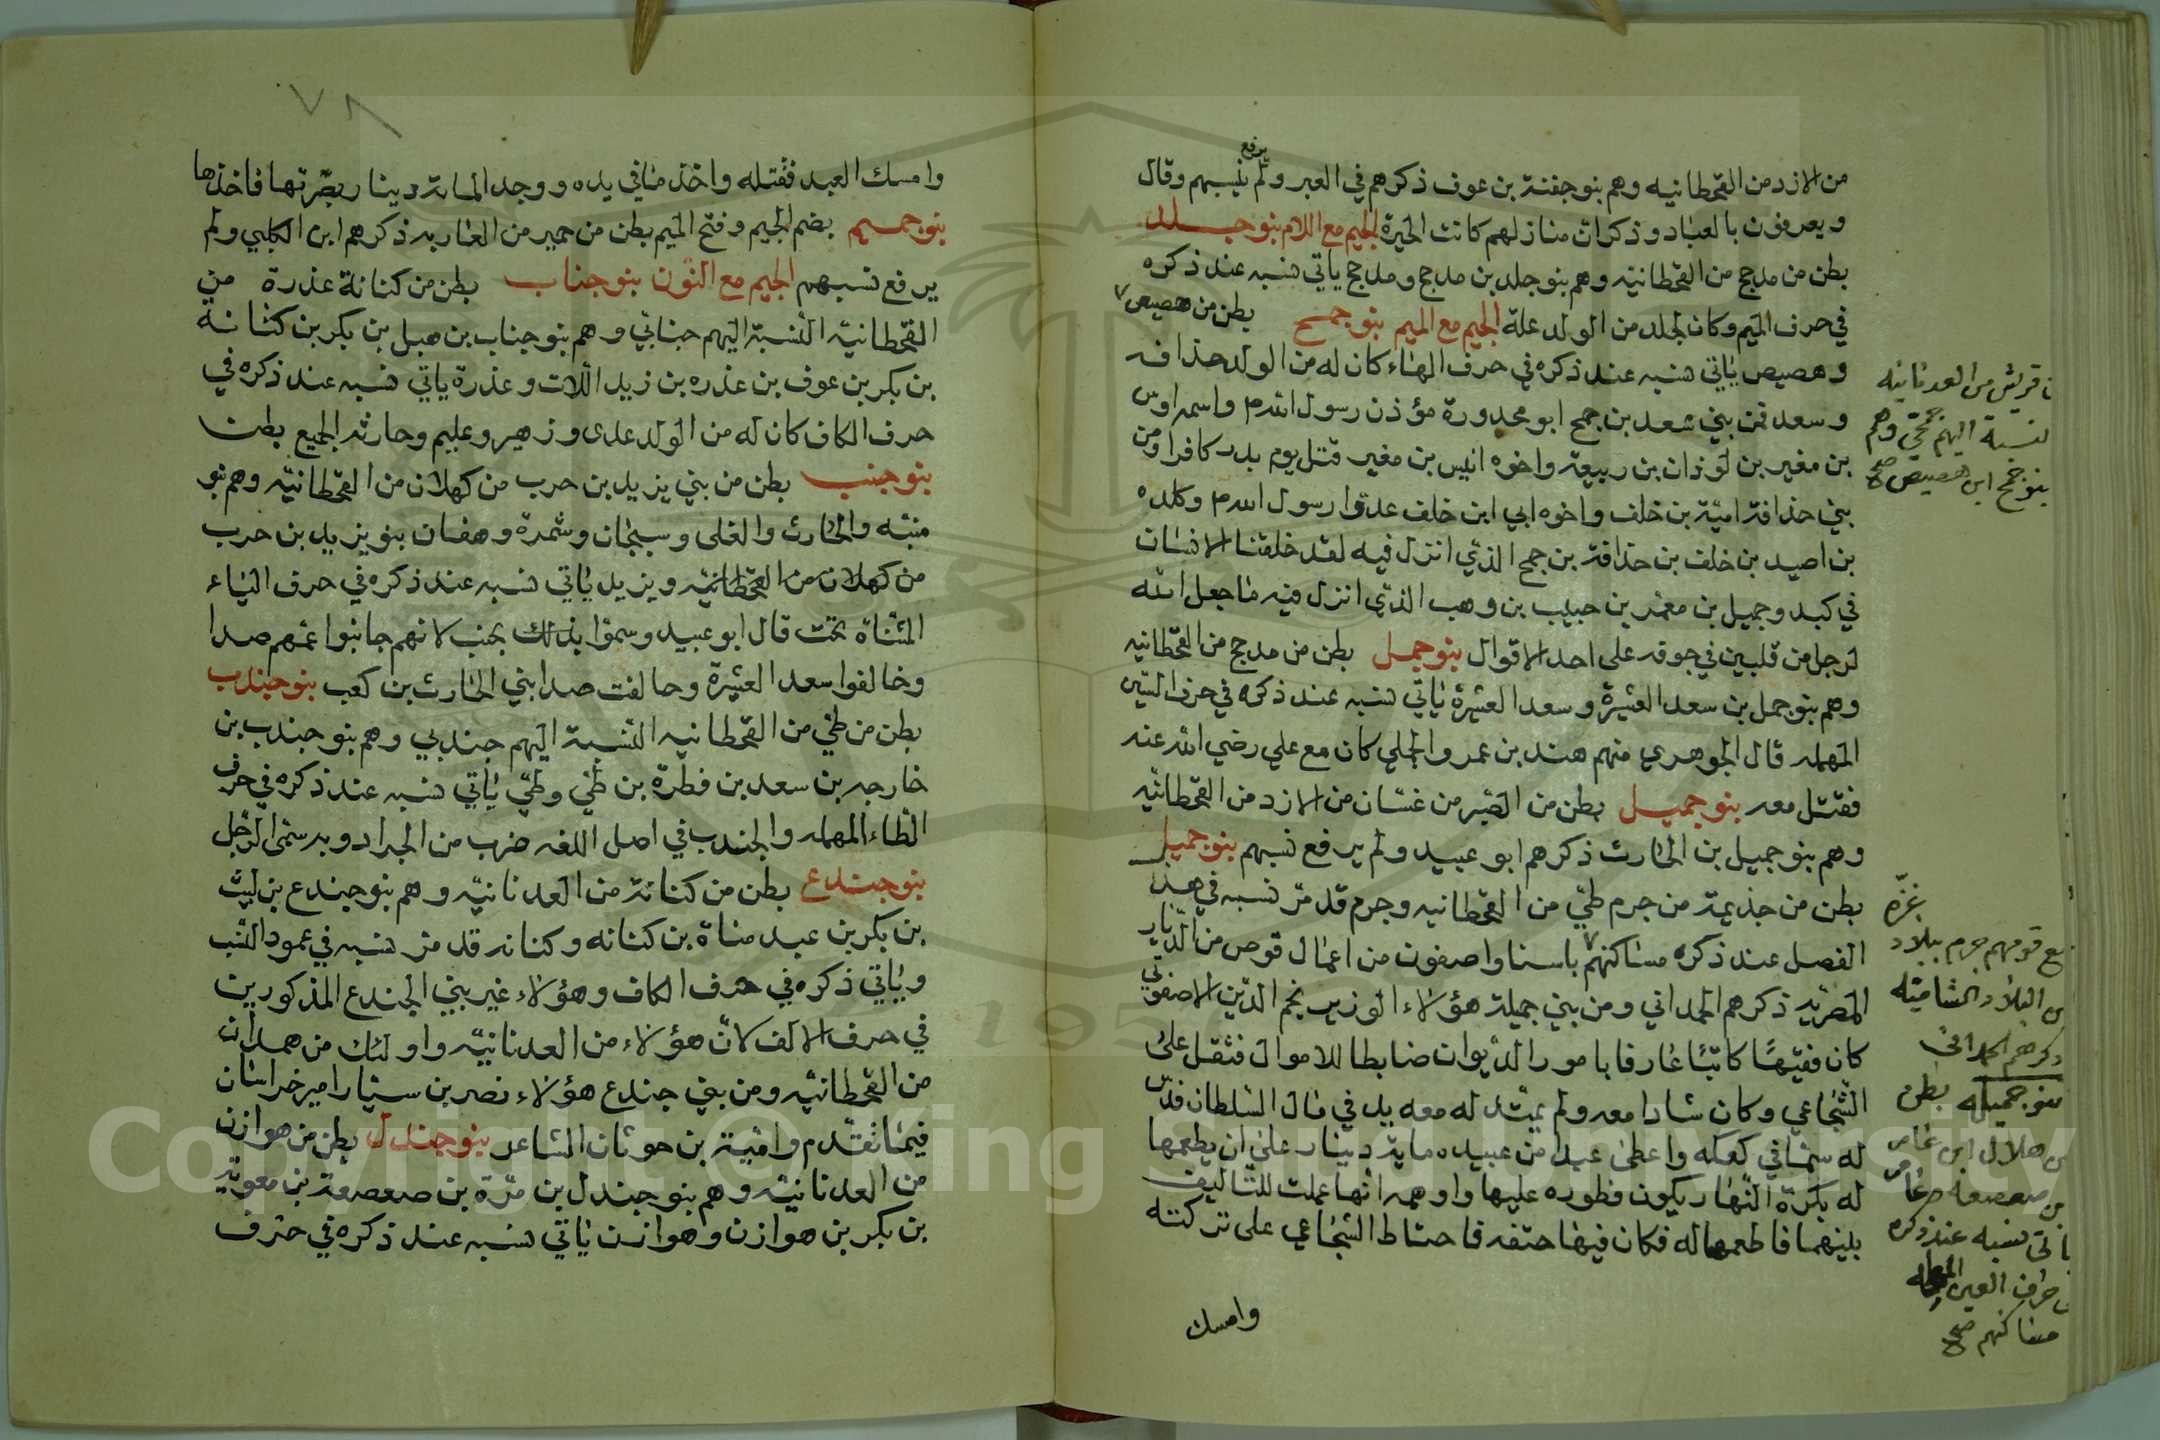 من الازد من القحطانيه وهم بنو جفنة بن عوف ذكرهم في العبر ولم يرفع نسبهم وقال
ويعرفون بالعباد وذكر ان منازلهم كانت الحيرة الجيم مع اللام بنو جلد
بطن من مدجج من القحطانيه وهم بنو جلد بن مدجج ومدجج ياتي نسبه عند ذكره
في حرف الميم وكان لجلد من الولد علة الجيم مع الميم بنو جمح بطن من هصيص
وهصيص ياتي نسبه عند ذكره في حرف الهاء كان له من الولد حذافه
وسعد فمن بني سعد بن جمح ابو محدورة مؤذن رسول الله م واسمه اوس
بن مغير بن لوذان بن ربيعة واخوه انيس بن مغير قتل يوم بدر كافرا ومن
بني حذافة امية بن خلف واخوه ابي ابن خلف عدوا رسول الله م وكلده
بن اصيد بن خلف بن حذافة بن جمح الذي انزل فيه لقد خلقنا الانسان
في كبد وجميل بن معمر بن حبيب بن وهب الذي انزل فيه ما جعل الله
لرجل من قلبين في جوفه على احد الاقوال بنو جمل بطن من مدجج من القحطانيه
وهم بنو جمل بن سعد العشيرة وسعد العشيرة ياتي نسبه عند ذكره في حرف السين
المهمله قال الجوهري منهم هند بن عمرو الجملي كان مع علي رضي الله عنه
فقتل معه بنو جميل بطن من الضبر من غسان من الازد من القحطانيه
وهم بنو جميل بن الحارث ذكرهم ابو عبيد ولم يرفع نسبهم بنو جميل
بطن من جذيمة من جرم طي من القحطانيه وجرم قد مر نسبه في هذا
الفصل عند ذكره مساكنهم باسنا واصفون من اعمال قوص من الديار
المصريه ذكرهم الحمداني ومن بني جميلة هؤلاء الوزير نجم الدين الاصفوني
كان فقيها كاتبا عارفا بامور الديوان ضابطا للاموال فثقل على
الشجاعي وكان شادا معه ولم يمتد له معه يد في مال السلطان فدس
له سما في كعكه واعطى عبدا من عبيده ماية دينار على ان يطعمها
له بكرة النهار يكون فطوره عليها واوهمه انها عملت للتاليف
بينهما فاطعمها له فكان فيها حتفه فاحتاط الشجاعي على تركته
وامسك
ن قريش من العدنانيه
لنسبة اليهم جمحي وهم
بنو جمح ابن هصيص صح
بغزة
مع قومهم جرم ببلاد
من البلاد الشاميه
ذكرهم الحمداني
بنو جميله بطن
من هلال ابن عامر
بن صعصعه وعامر
ياتي نسبه عند ذكره
حرف العين المهمله
مساكنهم صح
٧٨
وامسك العبد فقتله واخذ ما في يده ووجد الماية دينار بصرتها فاخذها
بنو جميم بضم الجيم وفتح الميم بطن من حمير من العاربه ذكرهم ابن الكلبي ولم
يرفع نسبهم الجيم مع النون بنو جناب بطن من كنانة عذرة من
القحطانية النسبة اليهم جنابي وهم بنو جناب بن هبل بن بكر بن كنانه
بن بكر بن عوف بن عذره بن زيد اللات وعذرة ياتي نسبه عند ذكره في
حرف الكاف كان له من الولد عدى وزهير وعليم وحارثه الجميع بطن
بنو جنب بطن من بني يزيد بن حرب من كهلان من القحطانيه وهم بنو
منبه والحارث والغلى وسبحان وشمره وهفان بنو يزيد بن حرب
من كهلان من القحطانيه ويزيد ياتي نسبه عند ذكره في حرف الياء
المثناة تحت قال ابو عبيد وسموا بذلك بجنب لانهم جانبوا عمهم صدا
وخالفوا سعد العشيرة وحالفت صدا بني الحارث بن كعب بنو جندب
بطن من طي من القحطانيه النسبة اليهم جندبي وهم بنو جندب بن
خارجه بن سعد بن فطرة بن طي وطي ياتي نسبه عند ذكره في حرف
الطاء المهمله والجندب في اصل اللغه ضرب من الجراد وبه سمى الرجل
بنو جندع بطن من كنانة من العدنانيه وهم بنو جندع بن ليث
بن بكر بن عبد مناة بن كنانه وكنانه قد مر نسبه في عمود النسب
وياتي ذكره في حرف الكاف وهؤلاء غير بني الجندع المذكورين
في حرف الالف لان هؤلاء من العدنانيه واولئك من همدان
من القحطانيه ومن بني جندع هؤلاء نصر بن سيار امير خراسان
فيما تقدم وامية بن حوثان الشاعر بنو جندل بطن من هوازن
من العدنانيه وهم بنو جندل بن مرة بن صعصعة بن معويه
بن بكر بن هوازن وهوازن ياتي نسبه عند ذكره في حرف
Copyright © King Saud University
195